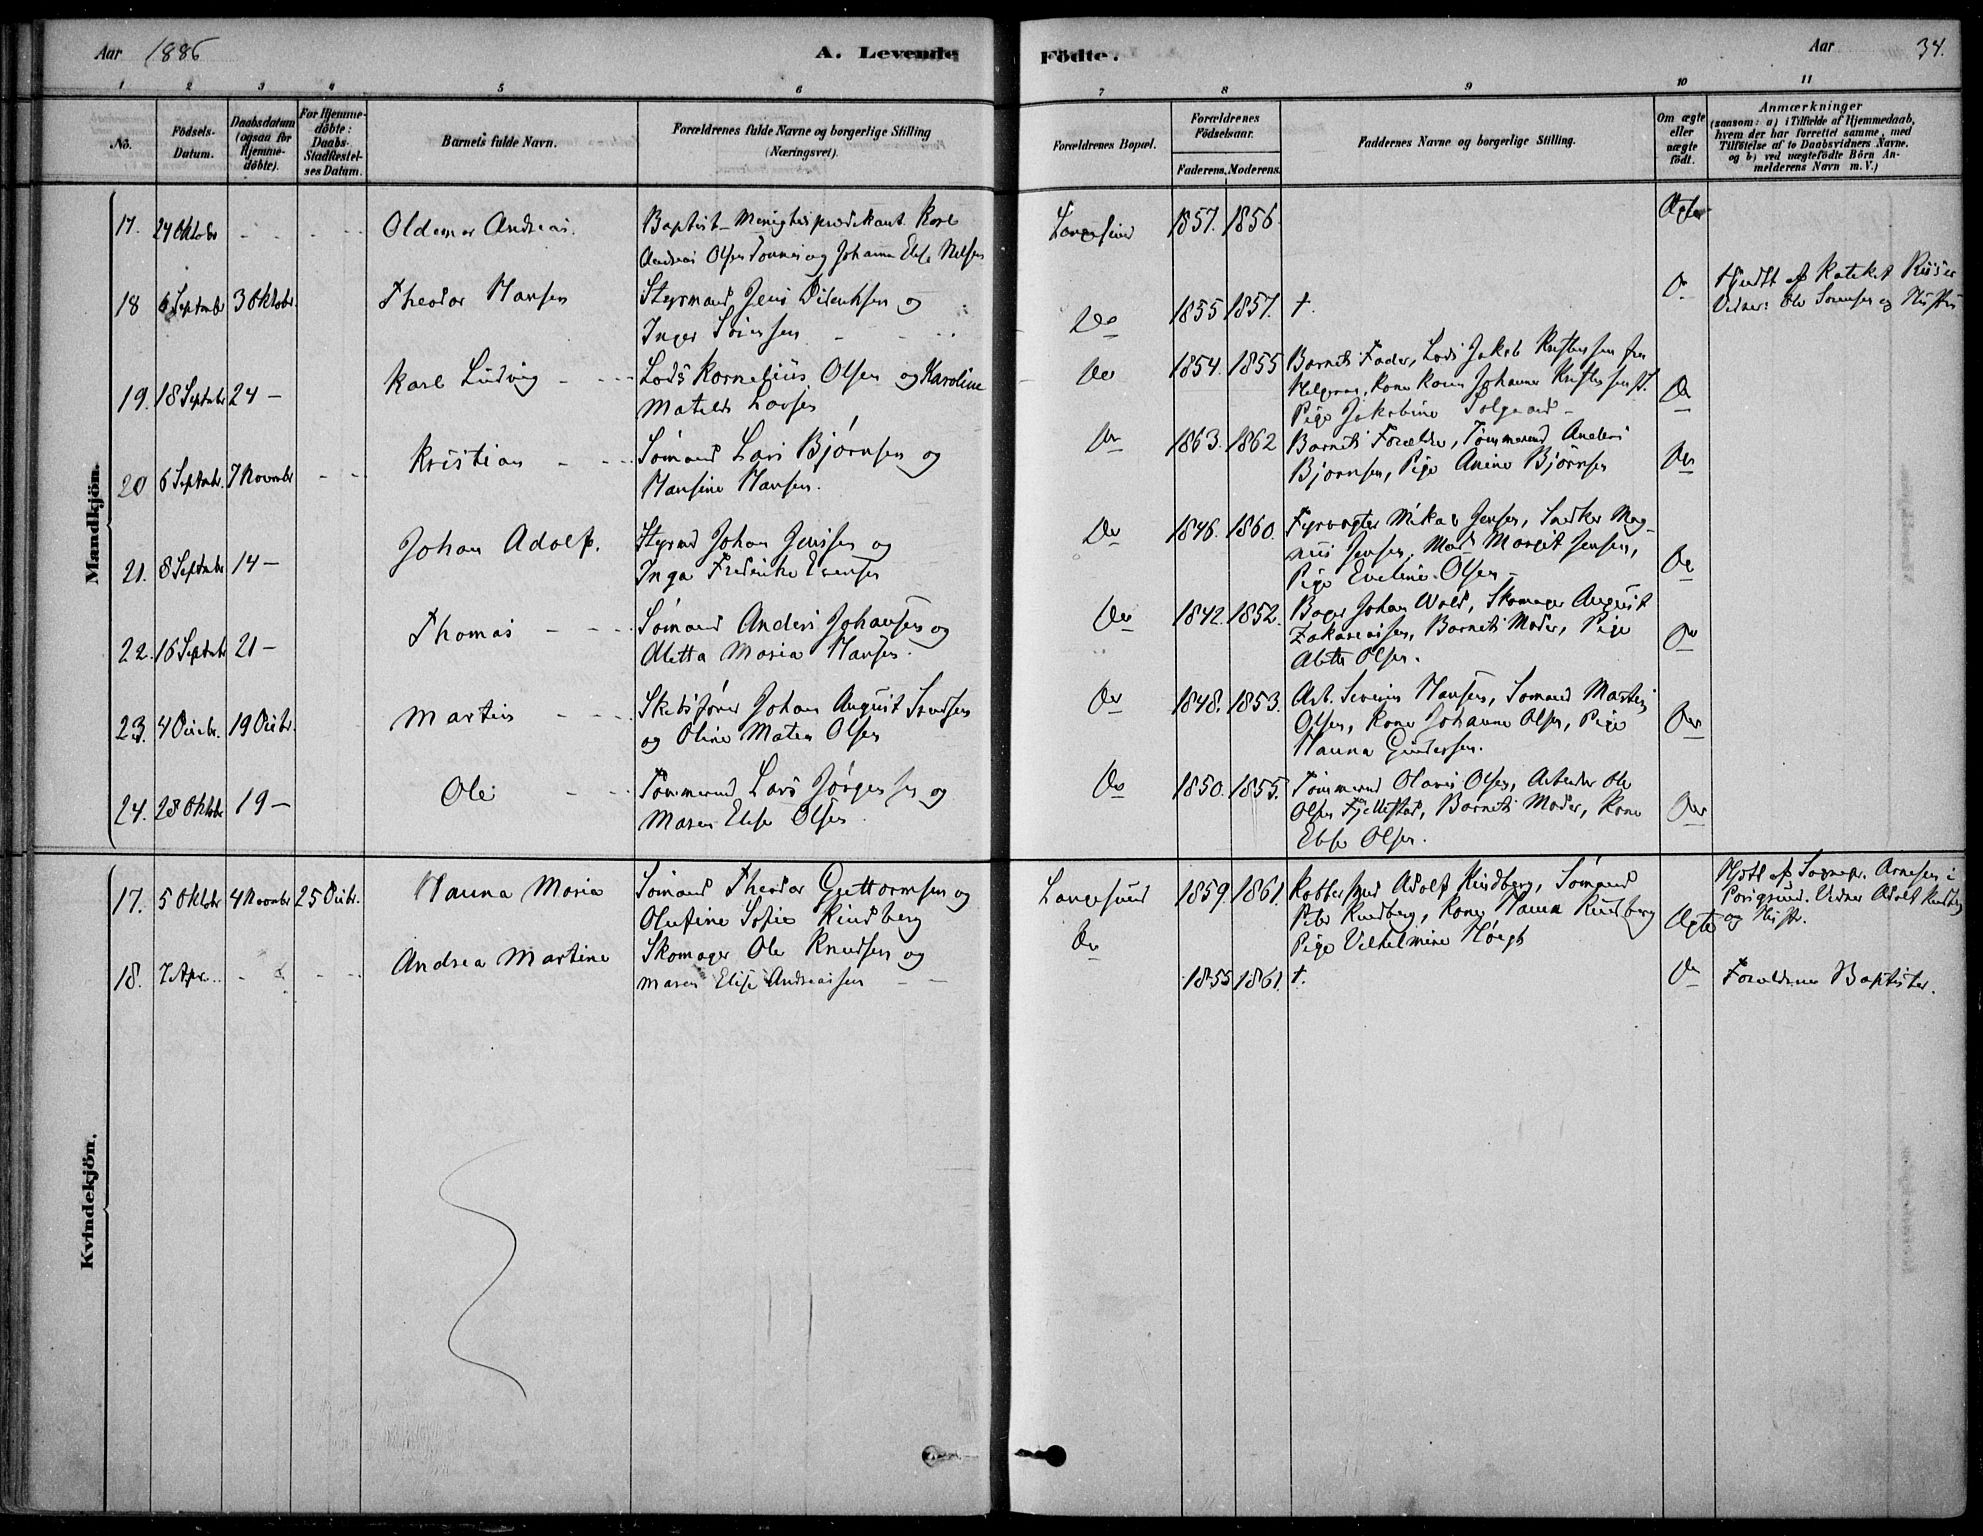 Aar 1886
A. Levende Födte.
Aar
34.
1 2 3 4 5 6 7 8 9 10 11
No.
Födsels-Datum.
Daabsdatum (ogsaa for Hjemme-döbte).
For Hjemme-döbte: Daabs-Stadfæstel-ses Datum.
Barnets fulde Navn.
Forældrenes fulde Navne og borgerlige Stilling (Næringsvei).
Forældrenes Bopæl.
Forældrenes Födselsaar.
Faderens. Moderens.
Faddernes Navne og borgerlige Stilling.
Om ægte eller uægte födt.
Anmærkninger
(saasom: a) i Tilfælde af Hjemmedaab,
hvem der har forrettet samme, med
Tilföielse af to Daabsvidners Navne.
og b) ved uægtefödte Börn An-
melderens Navn m.V.)
Mandkjön.
17. 24 Oktober - - - - Oldemar Andreas. Baptist-Menighedsprædikant Karl
Andreas Olsen og Johanne Elise Nilsen
Langesund 1857. 1856. Ægte
18 6 September 3 Oktober. Theodor Hansen Styrmand Jens Didriksen og
Inger Sørensen - -
Do 1855 1857. †. Do Hjdbt af Kateket Riiser
Vidner: Ole Sørensen og Hustru
19. 18 September 24 - Karl Ludvig - - Lods Kornelius Olsen og Karoline
Matilde Larsen
Do 1854. 1855 Barnets Fader, Lods Jakob Kristensen fra
Helgeraa, Kone Karen Johanne Kristensen st.
Pige Jakobine Solgaard - Do
20 6 September. 7 November - - Kristian - - Sømand Lars Bjørnsen og
Hansine Hansen.
Do 1863. 1862 Barnets Forældre, Tømmermd Anders
Bjørnsen, Pige Anine Bjørnsen Do
21. 8 September 14 - Johan Adolf. Styrmd Johan Jenssen og
Inga Fredrikke Evensen
Do 1846. 1860. Fyrvogter Mikael Jensen, Snedker Mag-
nus Jensen, Mad. Margit Jensen,
Pige Eveline Olsen - Do
22. 16 September 21 - Thomas - - Sømand Anders Johansen og
Aletta Maria Hansen.
Do 1842. 1852. Bager Johan Wold, Skomager August
Zakariassen, Barnets Moder, Pige
Aletta Olsen. Do
23. 4 Decbr. 19 Decbr. Martin - - Skibsfører Johan August Svendsen
og Oline Matea Olsen
Do 1848. 1853. Arb. Severin Hansen, Sømand Martin
Olsen, Kone Johanne Olsen, Pige
Hanna Gundersen. Do
24. 28 Oktober 19 - Ole - - Tømmermd Lars Jørgensen og
Maren Elise Olsen
Do 1850. 1855. Tømmermd Olavis Olsen, Arbeider Ole
Olsen Fjellestad, Barnets Moder, Kone
Ebse Olsen. Do
Kvindekjön.
17. 5 Oktober 4 November 25 Decbr. Hanna Maria Sømand Theodor Guttormsen og
Olufine Sofie Rindberg
Langesund 1859. 1861. Kobbersmed Adolf Rindberg, Sømand
Peter Rindberg, Kone Hanna Rindberg
Pige Vilhelmine Høegh Ægte Hjdbt af Sognepr. Arnesen i
Porsgrund. Vidner Adolf Rindberg
og Hustr.
18. 7 Apr. - - - - Andrea Martine Skomager Ole Knudsen og
Maren Elise Andreassen - -
Do 1855 1861. †. Do Forældrene Baptister.